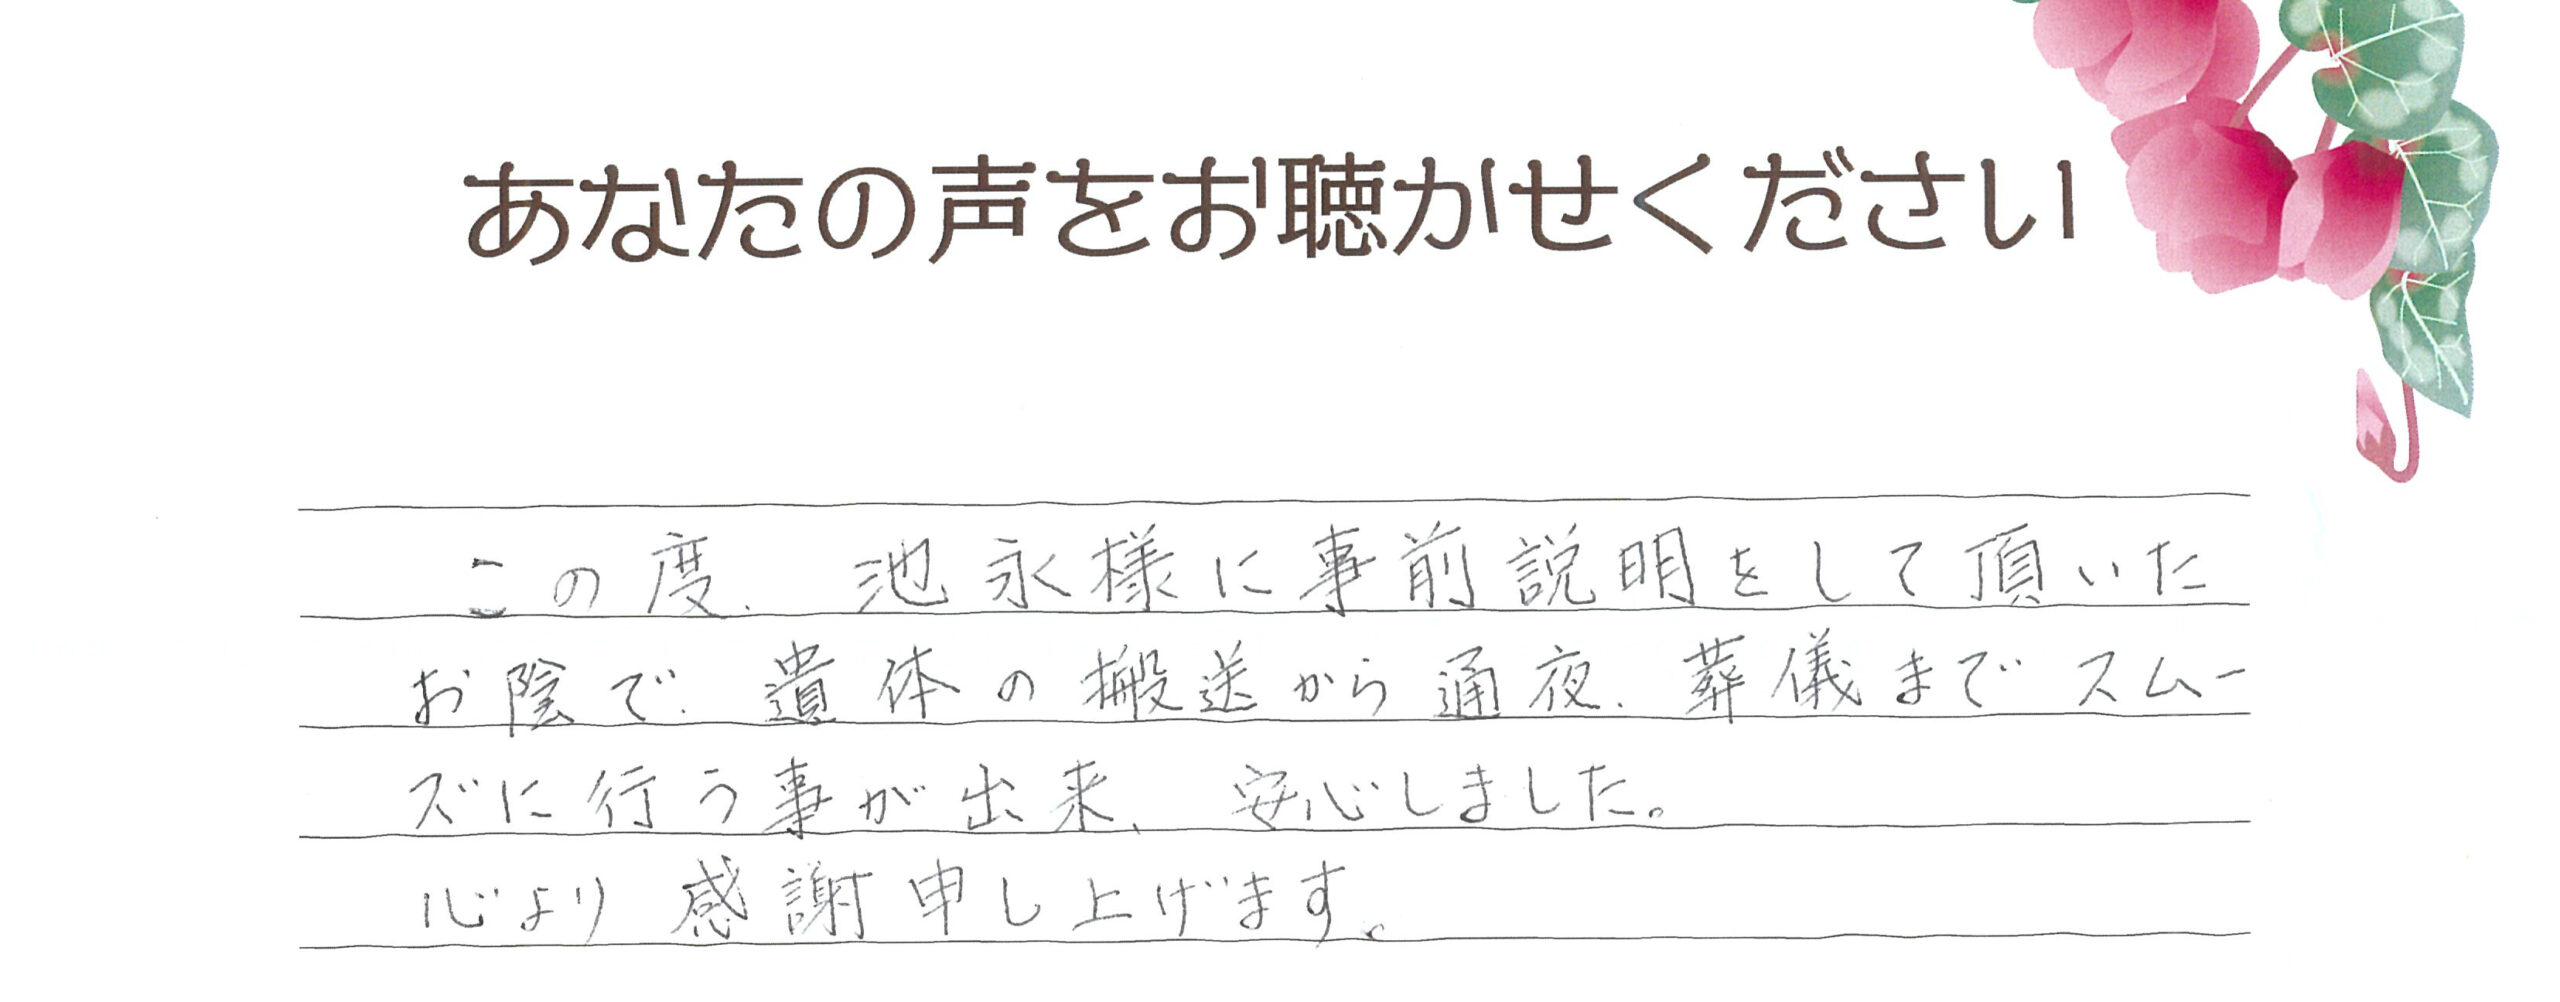 あなたの声をお聴かせください
この度、池永様に事前説明をして頂いた
お陰で、遺体の搬送から通夜、葬儀までスムー
ズに行う事が出来、安心しました。
心より感謝申し上げます。